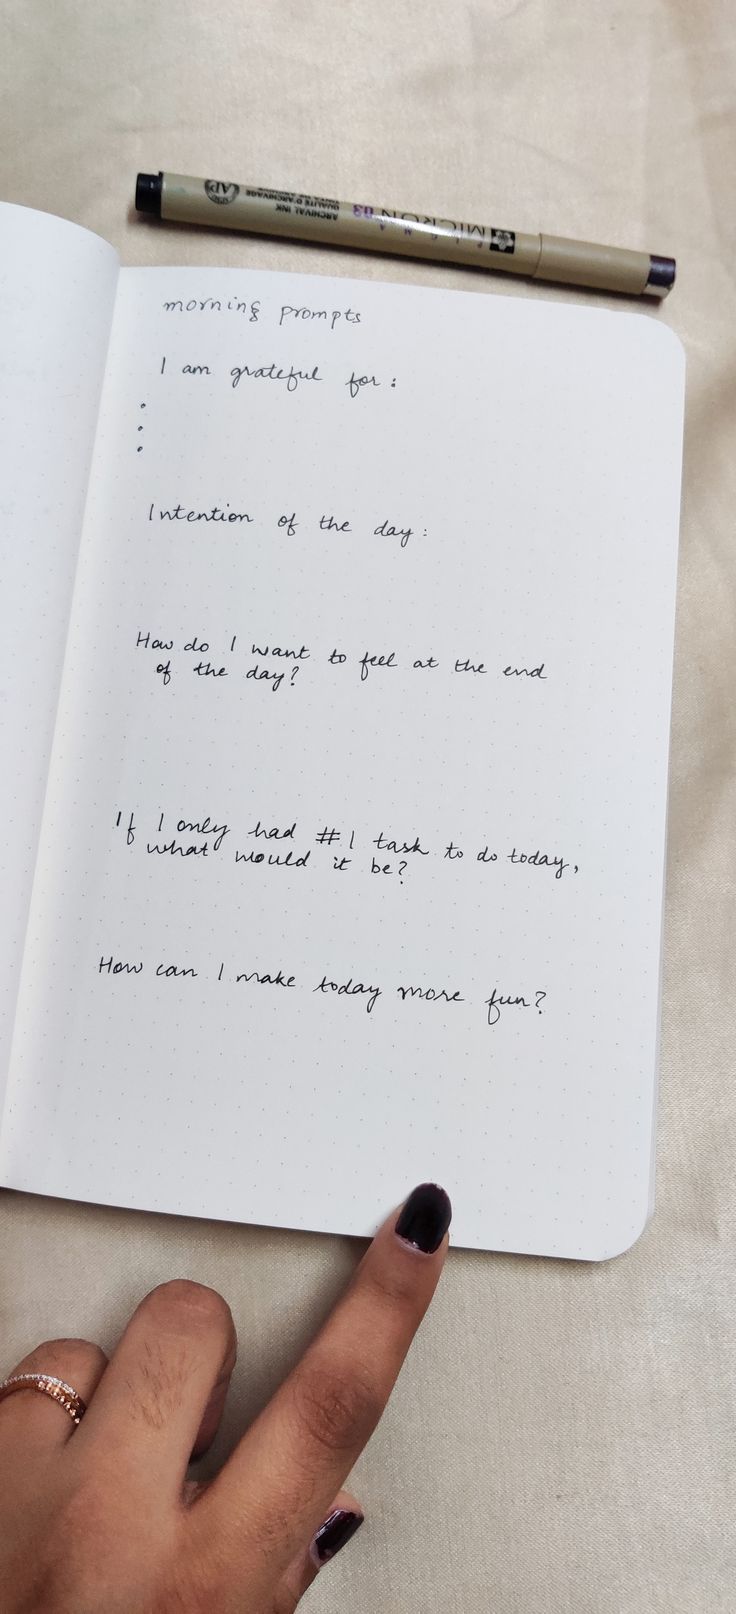 ARCHIVAL INK
QUALITÉ D'ARCHIVAGE
AP
PIGMA
MICRON 03
morning prompts
I am grateful for:
•
•
•
Intention of the day:
How do I want to feel at the end
of the day?
If I only had #1 task to do today,
what would it be?
How can I make today more fun?